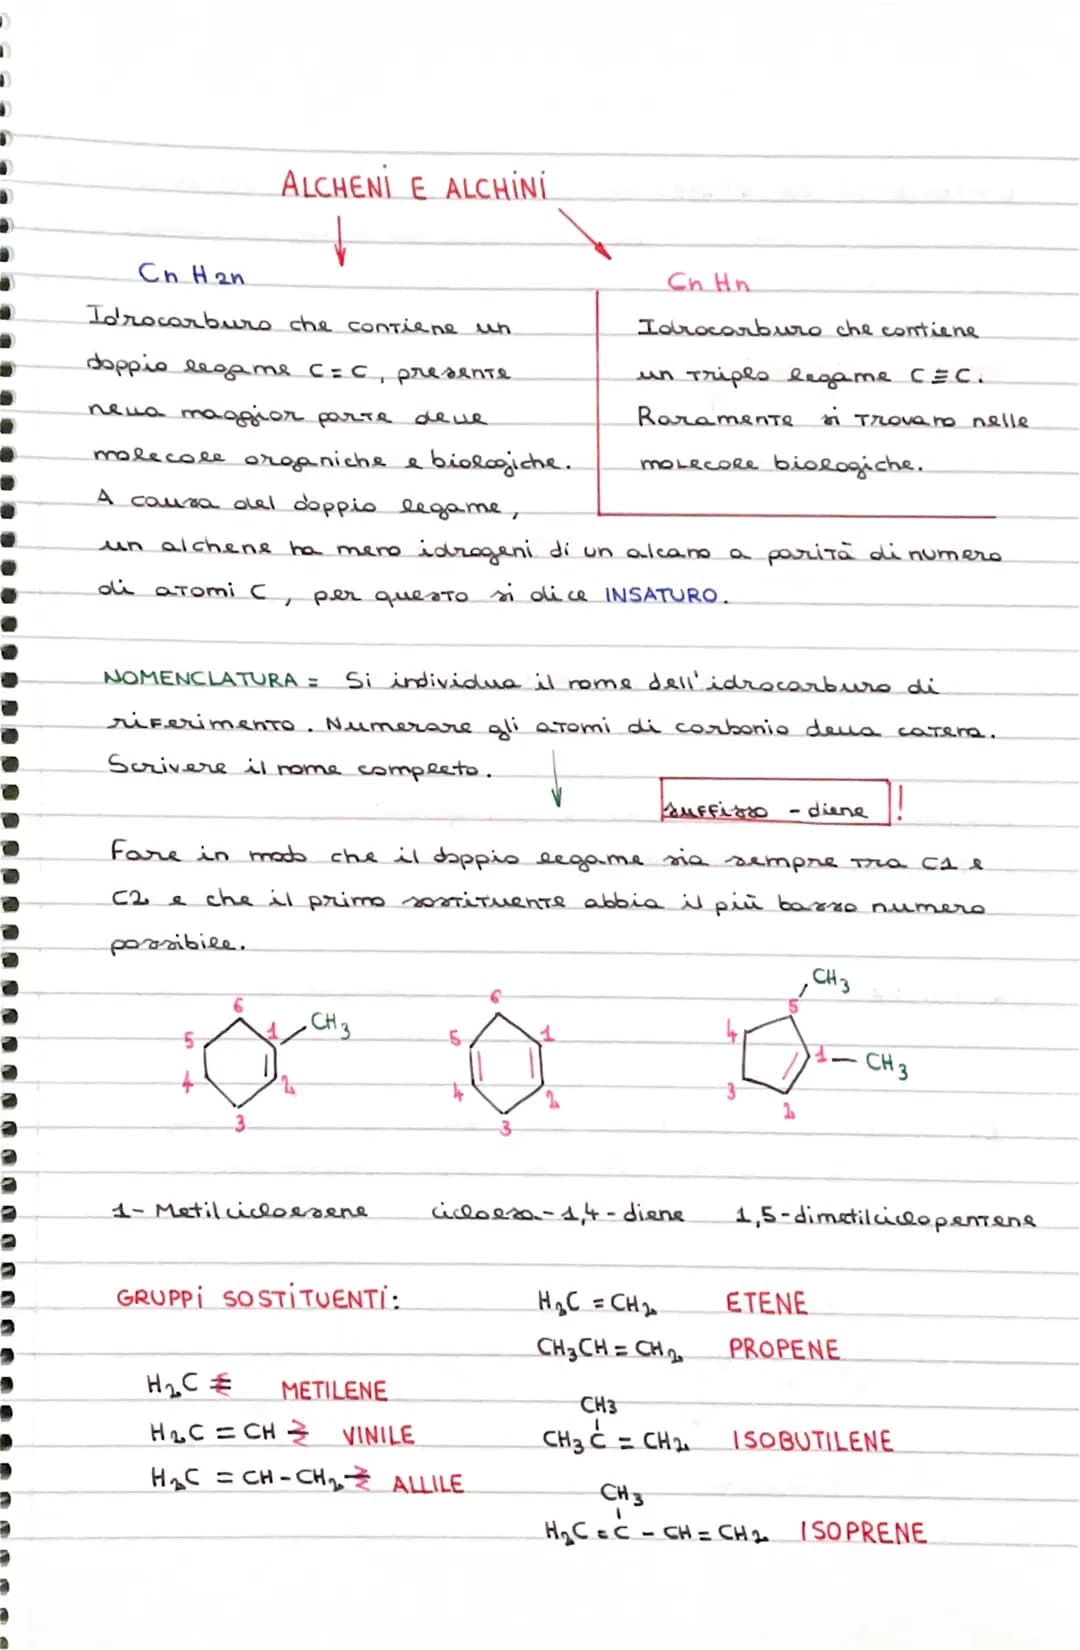 ALCHENI E ALCHINI
Cn H2n
Idrocarburo che contiene un
doppio legame C=C, presente
nella maggior parte delle
molecole organiche e biologiche.
A causa del doppio legame,
un alchene ha meno idrogeni di un alcano a parità di numero
di atomi C, per questo si dice INSATURO.
Cn Hn
Idrocarburo che contiene
un triplo legame C≡C.
Raramente si trovano nelle
molecole biologiche.
NOMENCLATURA = Si individua il nome dell'idrocarburo di
riferimento. Numerare gli atomi di carbonio della catena.
Scrivere il nome completo.
suffisso - diene !
Fare in modo che il doppio legame sia sempre tra C1 e
C2 e che il primo sostituente abbia il più basso numero
possibile.
6
5 1 CH3
4 2
3
6
5 1
4 2
3
CH3
5
4 1 - CH3
3
2
1- Metilcicloesene
cicloesa-1,4-diene
1,5-dimetilciclopentene
GRUPPI SOSTITUENTI:
H2C = METILENE
H2C = CH VINILE
H2C = CH - CH2 ALLILE
H2C = CH2 ETENE
CH3CH = CH2 PROPENE
CH3
CH3 C = CH2 ISOBUTILENE
CH3
H2C = C - CH = CH2 ISOPRENE